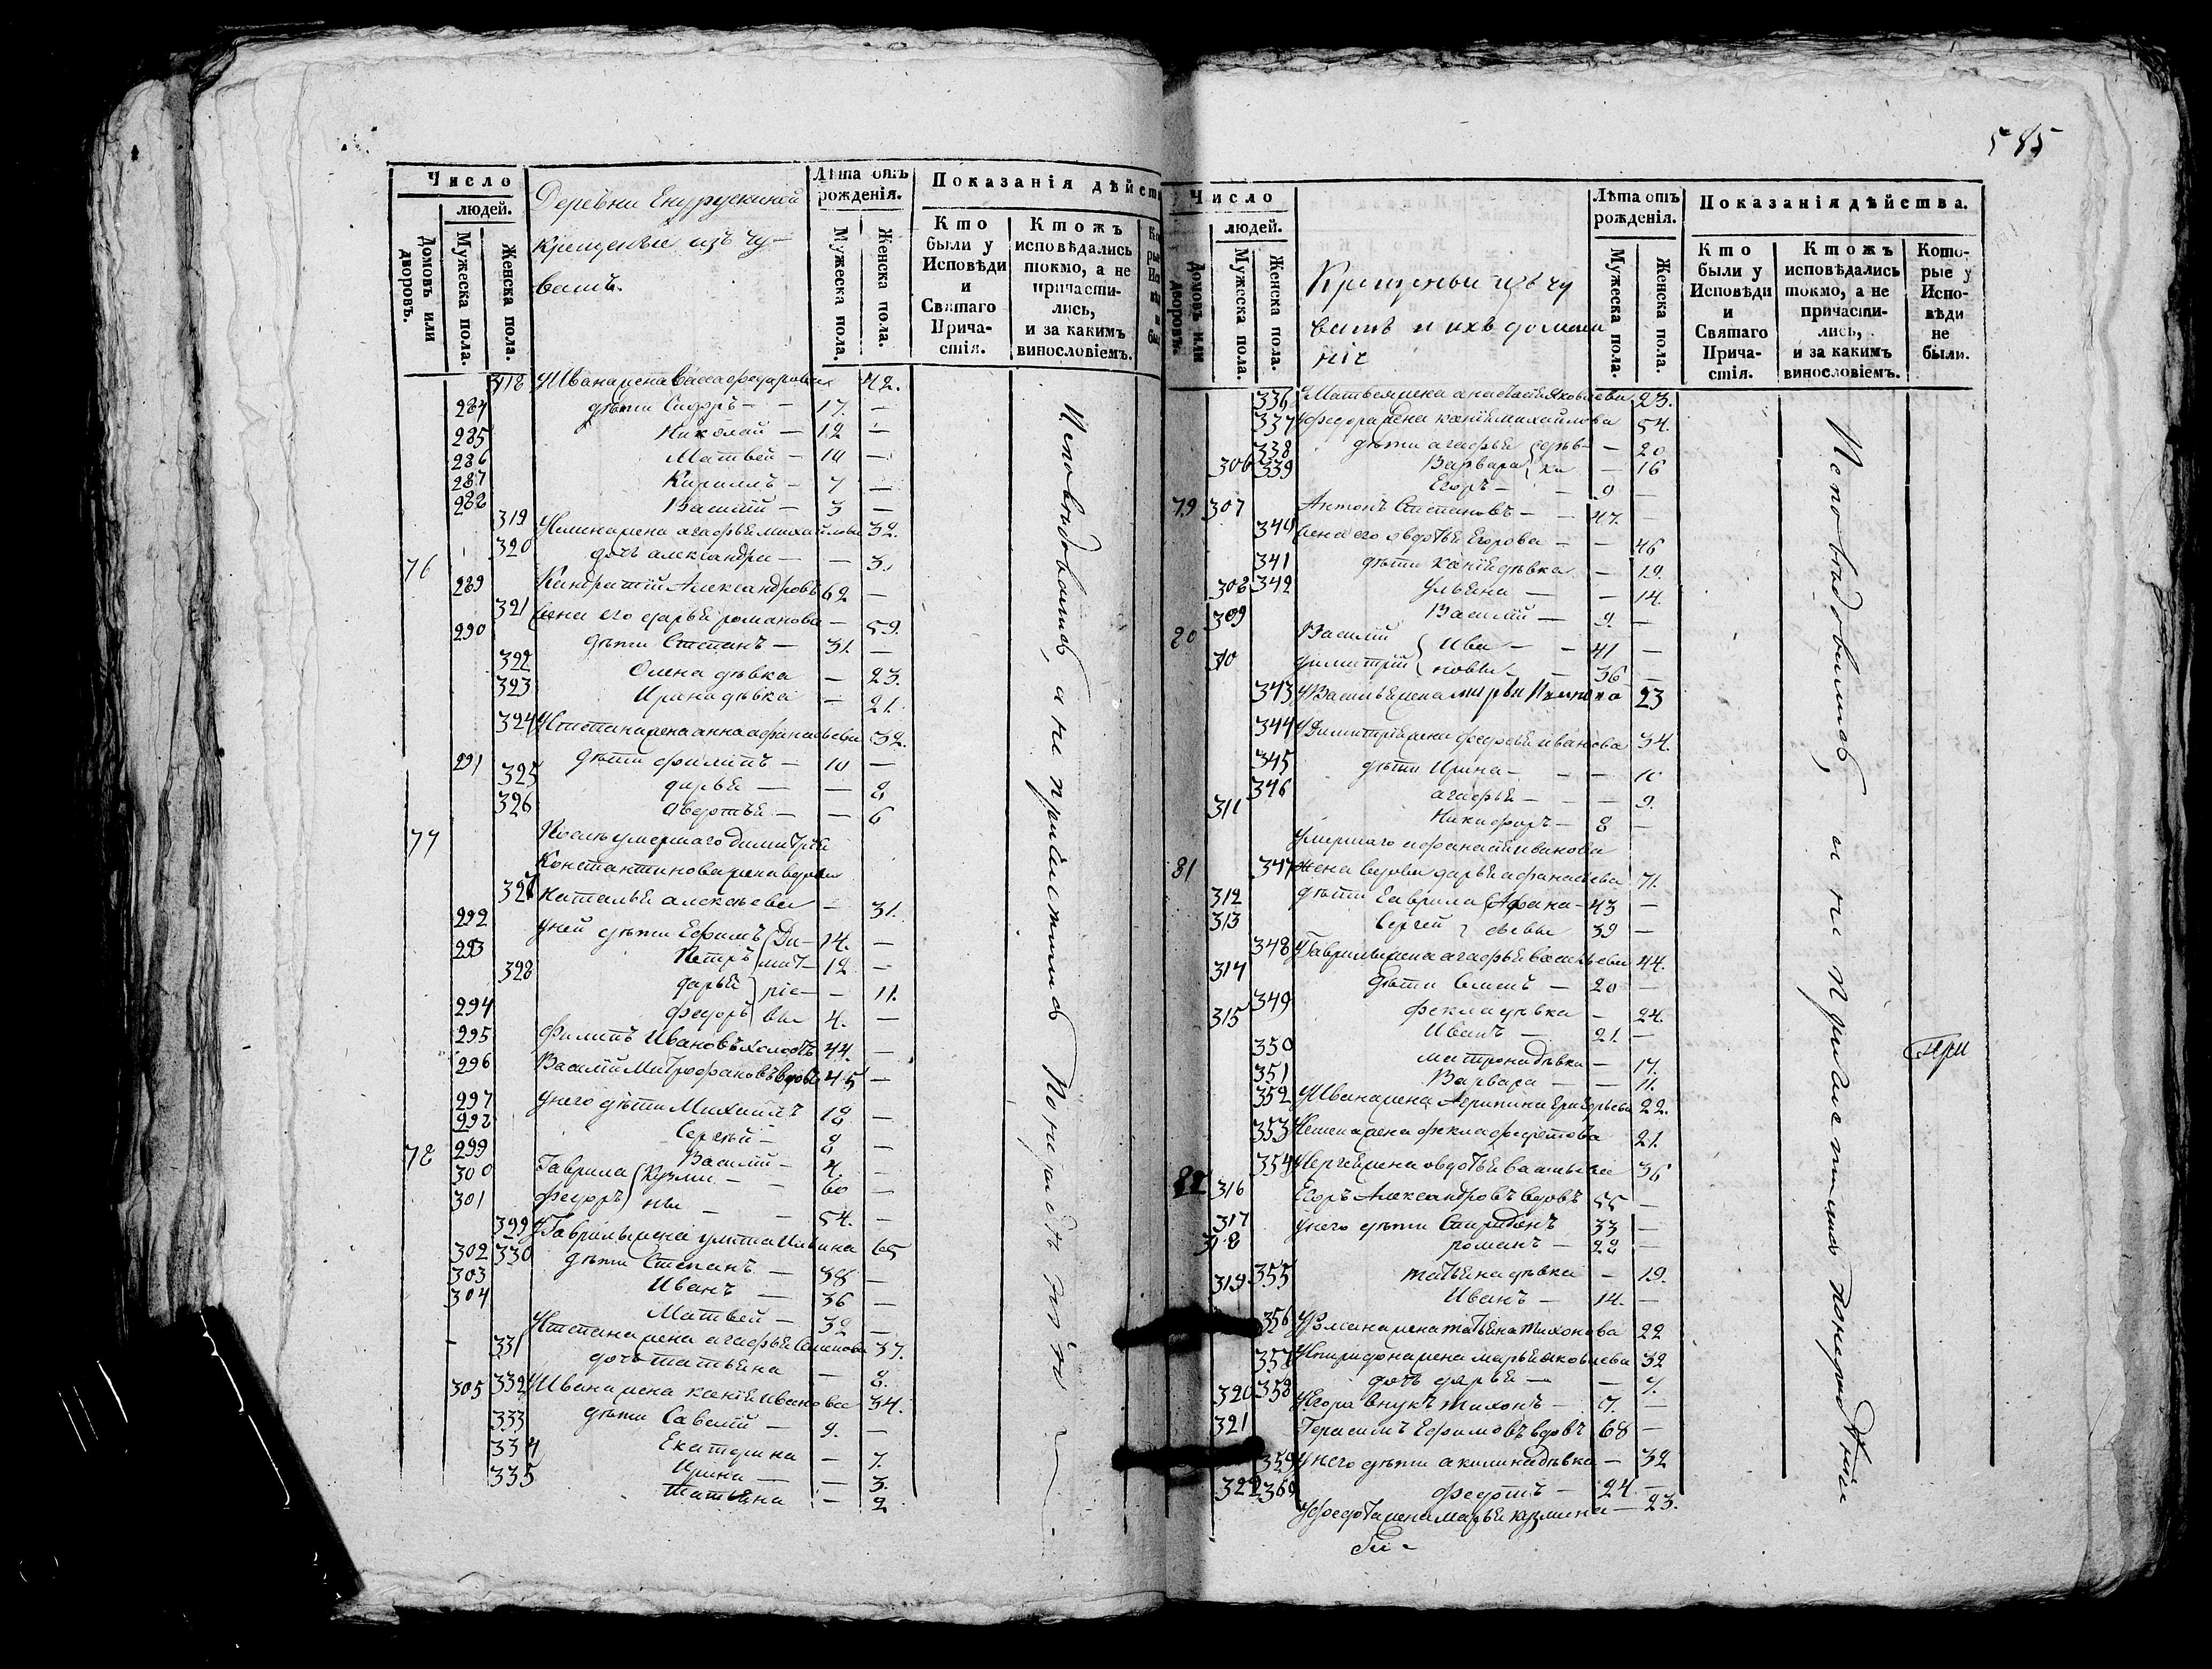 Число
людей.
Домовъ или дворовъ.
Мужеска пола.
Женска пола.
Деревни Енурускиной
крещеные изъ чу-
вашъ.
Лѣта отъ рожденія.
Мужеска пола.
Женска пола.
Показанія дѣйст
Кто были у Исповѣди и Святаго Прича-стія.
Ктожъ исповѣдались токмо, а не причасти-лись, и за какимъ винословіемъ.
318 У Ивана жена Васса Федарова 42.
284 дѣти Сидоръ — 17. —
285 Николай — 12 —
286 Матвей — 10 —
287 Кирилъ — 7 —
288 Василій — 3 —
319 жена агафья михайлова 32.
320 дочь александра — — 3.
76 289 Кандратій Александровъ 62. —
321 жена его дарья романова — 59.
290 дѣти Степанъ — 31. —
322 Олена дѣвка — 23.
323 Ирина дѣвка — 21.
324 У Степана жена анна афанасьева 32.
291 дѣти филипъ — 10 —
325 дарья — — 8
326 авдотья — — 6
77 После умершаго димитрія
Константинова жена вдова
327 наталья алексѣева — 31.
292 у ней дѣти Ефимъ Ди- 14. —
293 Петръ мит- 12 —
328 дарья ріе- — 11.
294 федоръ вы 4. —
295 филипъ Ивановъ холостъ 44. —
296 Василій Митрофановъ вдовъ 45 —
297 у него дѣти Михаилъ 18 —
298 Сергѣй — 8 —
299 Василій — 4. —
78 300 Гаврила Кузми- 60 —
301 федоръ ны — 54. —
399 У Гаврилы жена улита Ильина 65
302 330 дѣти Степанъ — 38 —
303 Иванъ — 36 —
304 Матвей — 32 —
У Степана жена агафья Семенова 37.
331 дочь татьяна — 8.
305 332 У Ивана жена ксенія Иванова 34.
333 дѣти Савелій — 9. —
334 Екатерина — 7.
335 Ирина — — 3.
татьяна — 2
Исповѣдовались, а не причастились по нерадѣнію
585
Число
людей.
Домовъ или дворовъ.
Мужеска пола.
Женска пола.
Крещеныи изъ чу
вашъ и ихъ домаш
ніе
Лѣта отъ рожденія.
Мужеска пола.
Женска пола.
Показанія дѣйства.
Кто были у Исповѣди и Святаго Прича-стія.
Ктожъ исповѣдались токмо, а не причасти-лись, и за какимъ винословіемъ.
Кото-рые у Испо-вѣди не были.
336 У Матвея жена анастасія Яковлева 23.
337 У федора жена ксенія михайлова 54.
338 дѣти агафья дѣв- — 20
306 339 Варвара ки — 16
Егоръ — 9 —
79 307 Антонъ Степановъ — 47. —
340 жена его авдотья Егорова — — 46
341 дѣти ксенія дѣвка — 19.
308 342 Ульяна — — 14.
309 Василій — 9. —
80 Василій Ива — 41 —
310 димитрій новы — 36 —
343 У Василья жена 23
344 У Димитрія жена федосья иванова 34.
345 дѣти Ирина — — 10
346 агафья — — 9.
311 Никифоръ — 8 —
умершаго афанасія иванова
81 347 жена вдова дарья афанасьева 71.
312 дѣти Гаврила Афана- 43 —
313 Сергей сьевы 39 —
348 У Гаврилы жена агафья васильева 44.
314 дѣти Семенъ — 20 —
349 фекла дѣвка — 24.
315 Иванъ — 21. —
350 матрона дѣвка — 17.
351 Варвара — — 11.
352 У Ивана жена Агрипина григорьева 22.
353 У Семена жена фекла федотова 21.
354 У Сергея жена овдотья васильева 36
82 316 Егоръ Александровъ вдовъ 55 —
317 у него дѣти Спиридонъ 33 —
318 романъ — 28 —
355 татьяна дѣвка — 19.
319 Иванъ — 14. —
356 У Романа жена татьяна тихонова 22
357 У Спиридона жена марья яковлева 32
358 дочь дарья — — 7.
320 У Егора внукъ тихонъ — 7. —
321 Герасимъ Ефимовъ вдовъ 68 —
359 у него дѣти акилина дѣвка — 32
322 360 федотъ — 24 —
У федота жена марья кузмина — 23.
Исповѣдовались, а не причастились по нерадѣнію
при